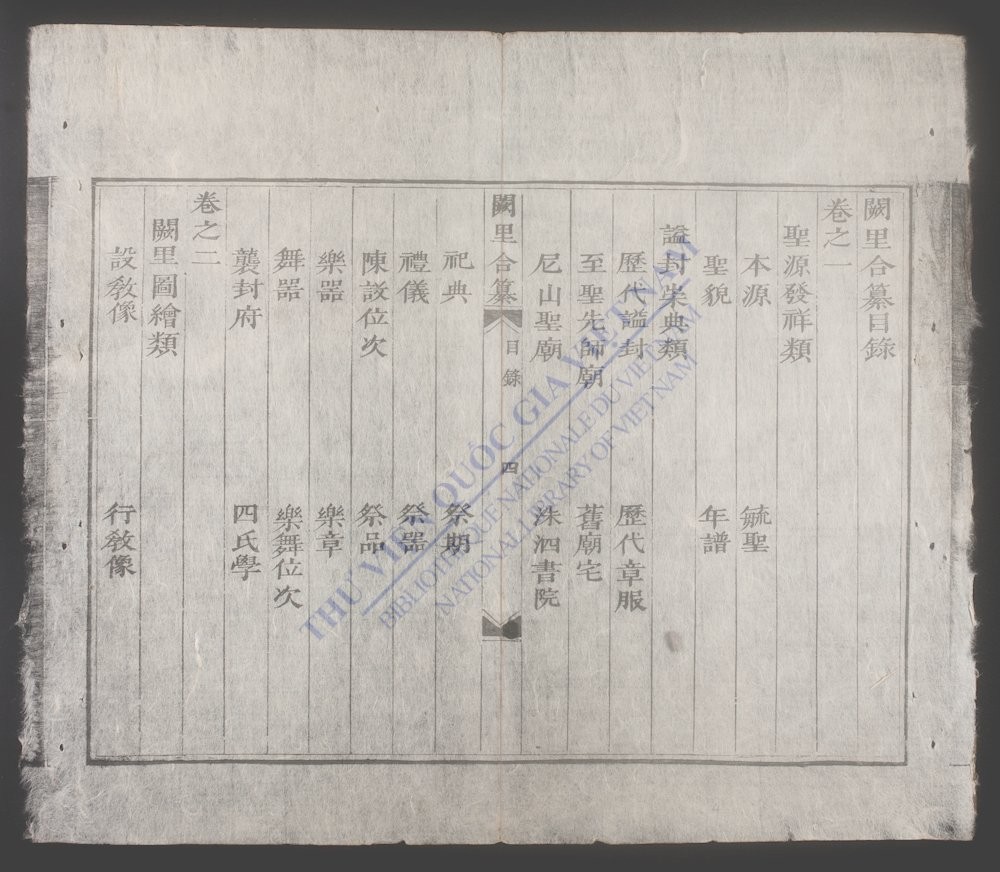 闕里合纂目錄
卷之一
聖源發祥類
本源 毓聖
聖貌 年譜
謚封崇典類
歷代謚封 歷代章服
至聖先師廟 舊廟宅
尼山聖廟 洙泗書院
闕里合纂 目錄 四
祀典 祭期
禮儀 祭器
陳設位次 祭品
樂器 樂章
舞器 樂舞位次
襲封府 四氏學
卷之二
闕里圖繪類
設教像 行教像
THƯ VIỆN QUỐC GIA VIỆT NAM
BIBLIOTHEQUE NATIONALE DU VIETNAM
NATIONAL LIBRARY OF VIETNAM